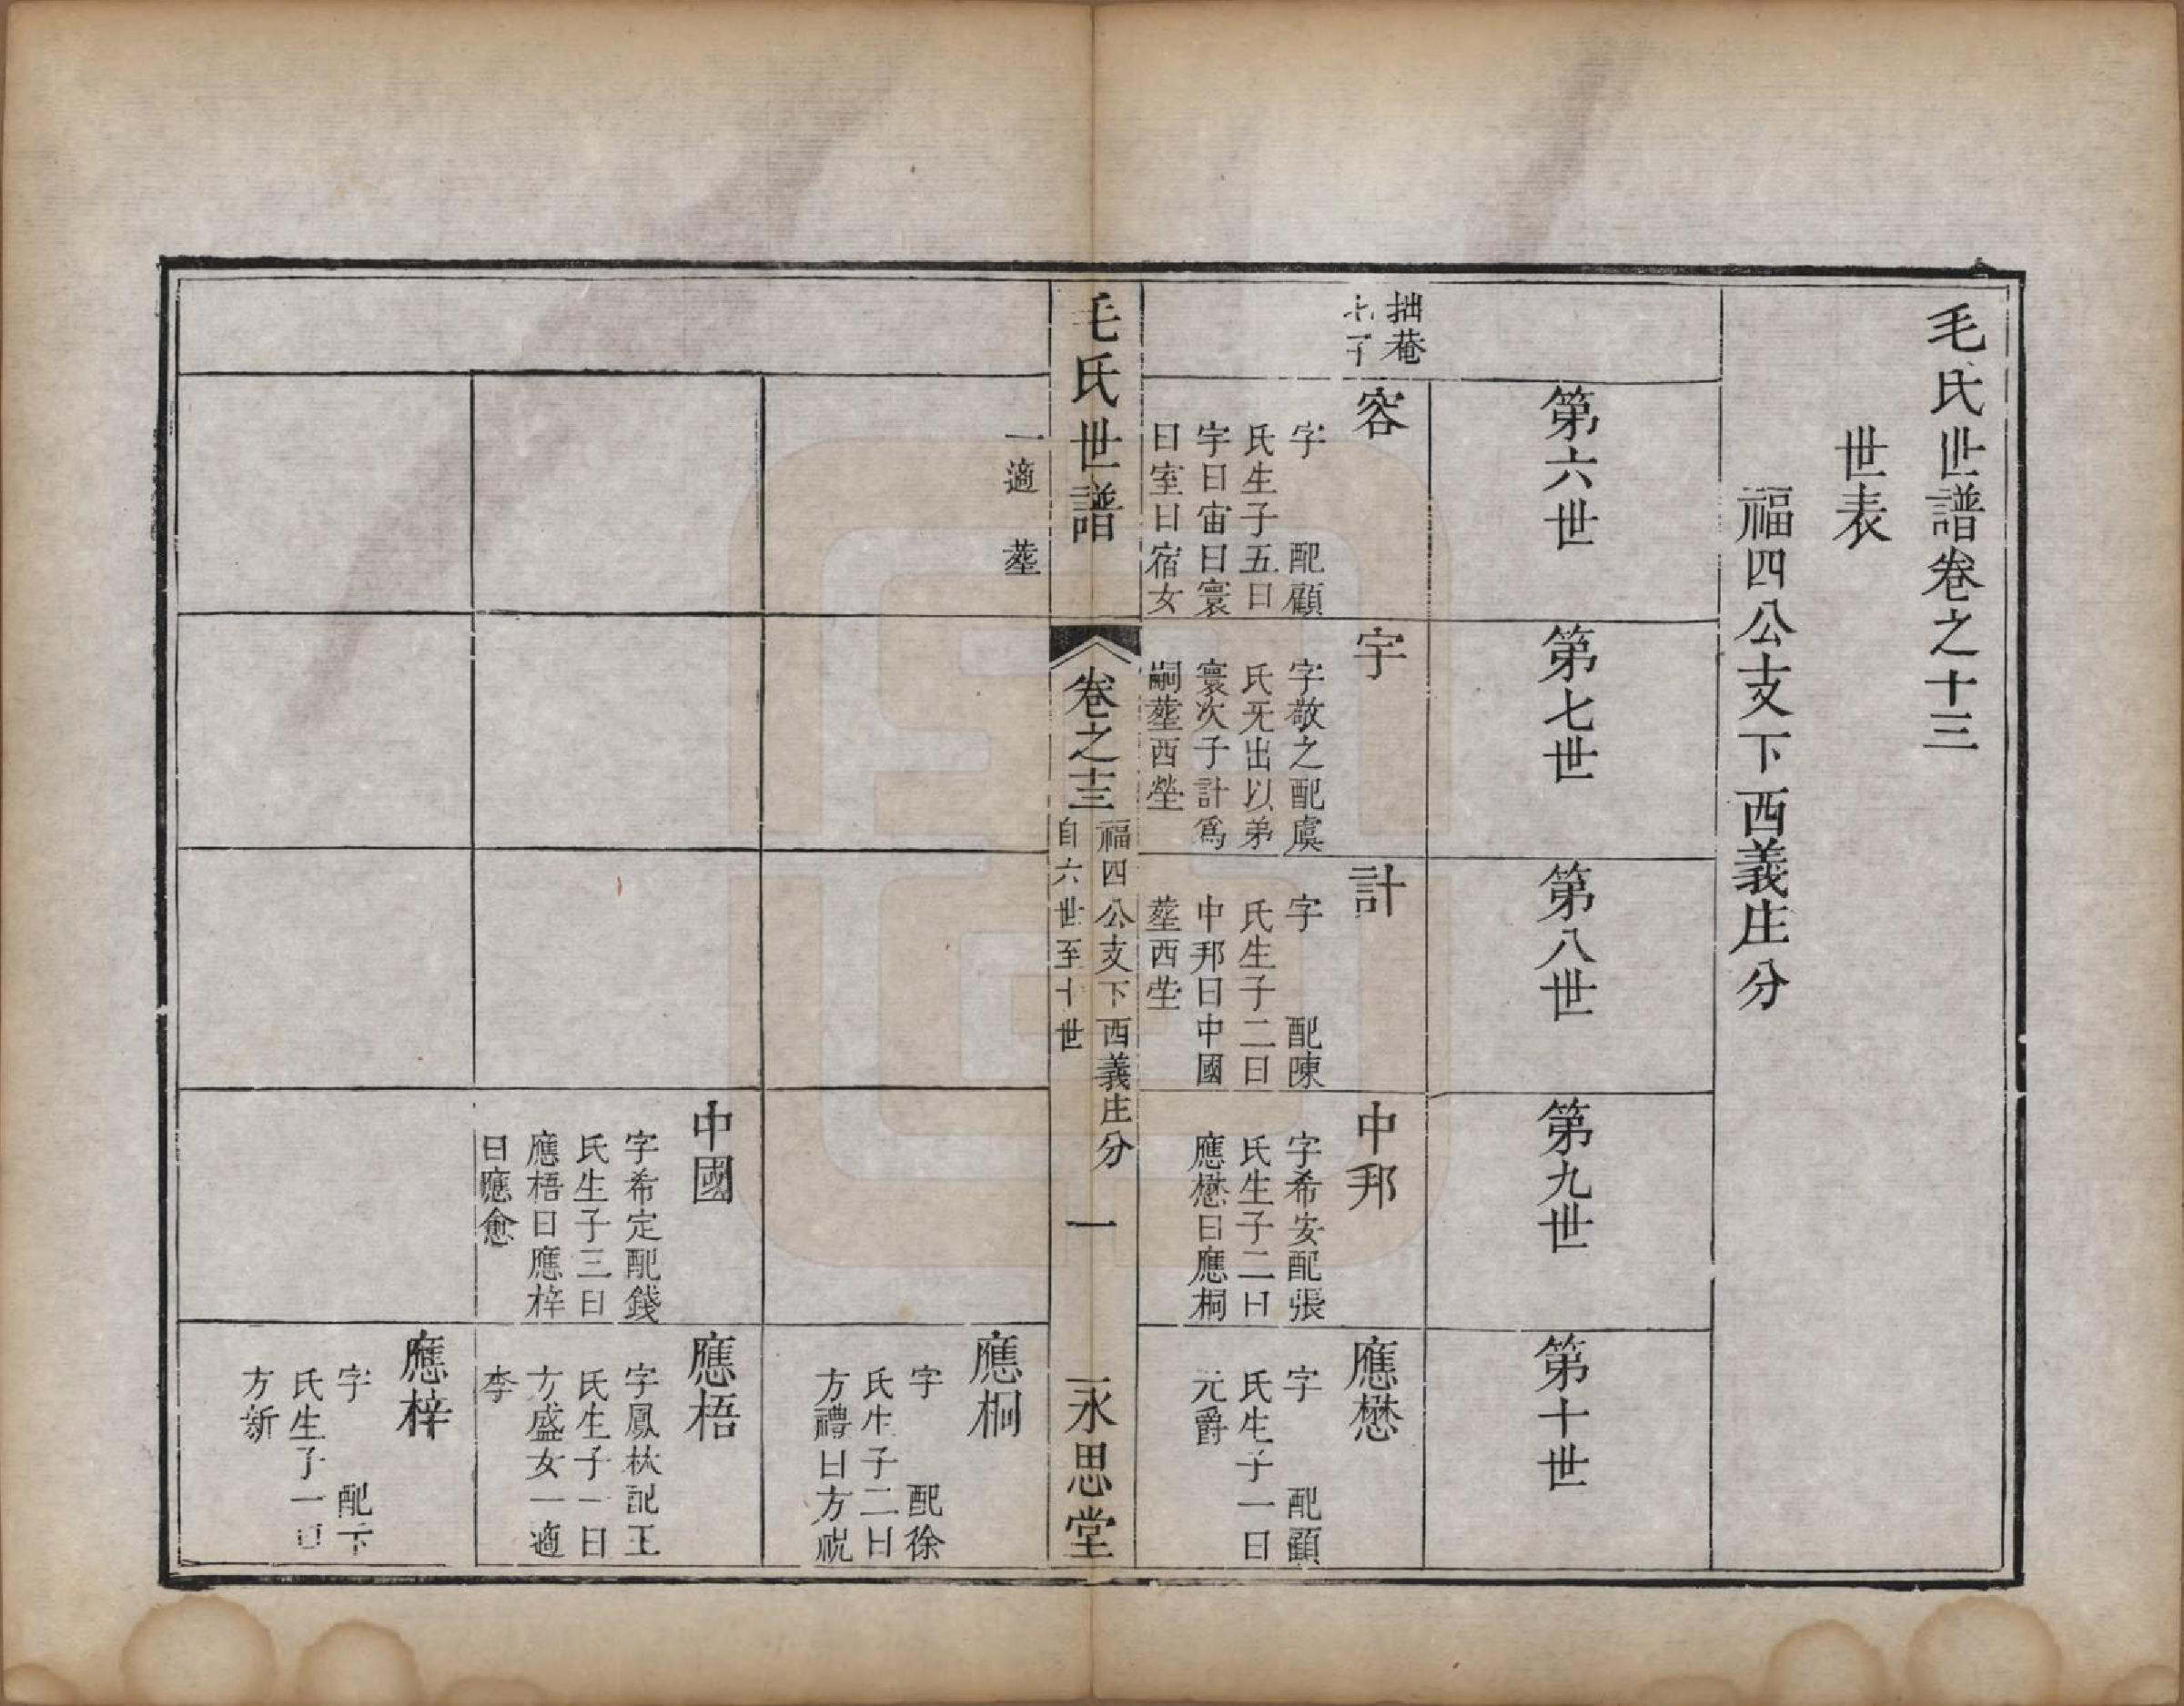 毛氏世譜卷之十三
世表
福四公支下西義庄分
第六世
第七世
第八世
第九世
第十世
拙菴
七子
容
字　　配顧
氏生子五曰
宇曰宙曰寰
曰室曰宿女
一適　葬
宇
字敬之配虞
氏无出以弟
寰次子計爲
嗣葬西塋
計
字　　配陳
氏生子二曰
中邦曰中國
葬西塋
中邦
字希安配張
氏生子二曰
應懋曰應桐
應懋
字　　配顧
氏生子一曰
元爵
毛氏世譜
卷之十三
福四公支下西義庄分
自六世至十世
一
永思堂
應桐
字　　配徐
氏生子二曰
方禮曰方祝
中國
字希定配錢
氏生子三曰
應梧曰應梓
曰應愈
應梧
字鳳林配王
氏生子一曰
方盛女一適
李
應梓
字　　配
氏生子一曰
方新